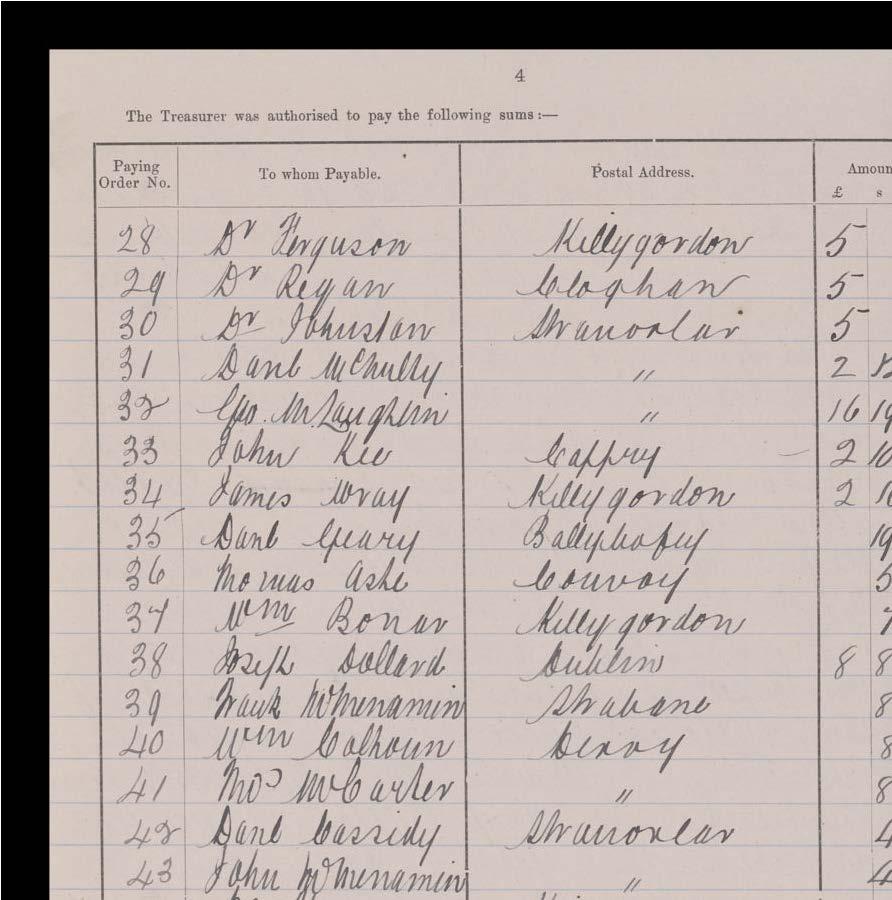 4
The Treasurer was authorised to pay the following sums:—
Paying Order No. To whom Payable. Postal Address. Amoun
£ s
28 Dr Ferguson Killygordon 5
29 Dr Regan Cloghan 5
30 Dr Johnston Stranorlar 5
31 Danl McNulty " 2
32 Geo. McLaughlin " 16 19
33 John Kee Cappry 2 10
34 James Wray Killygordon 2
35 Danl Geary Ballybofey 19
36 Thomas Ashe Convoy 5
37 Wm Bonar Killygordon 7
38 Joseph Dollard Dublin 8 8
39 Frank McMenamin Strabane 8
40 Wm Colhoun Derry 8
41 Thos McCarter " 8
42 Danl Cassidy Stranorlar 4
43 John McMenamin " 4